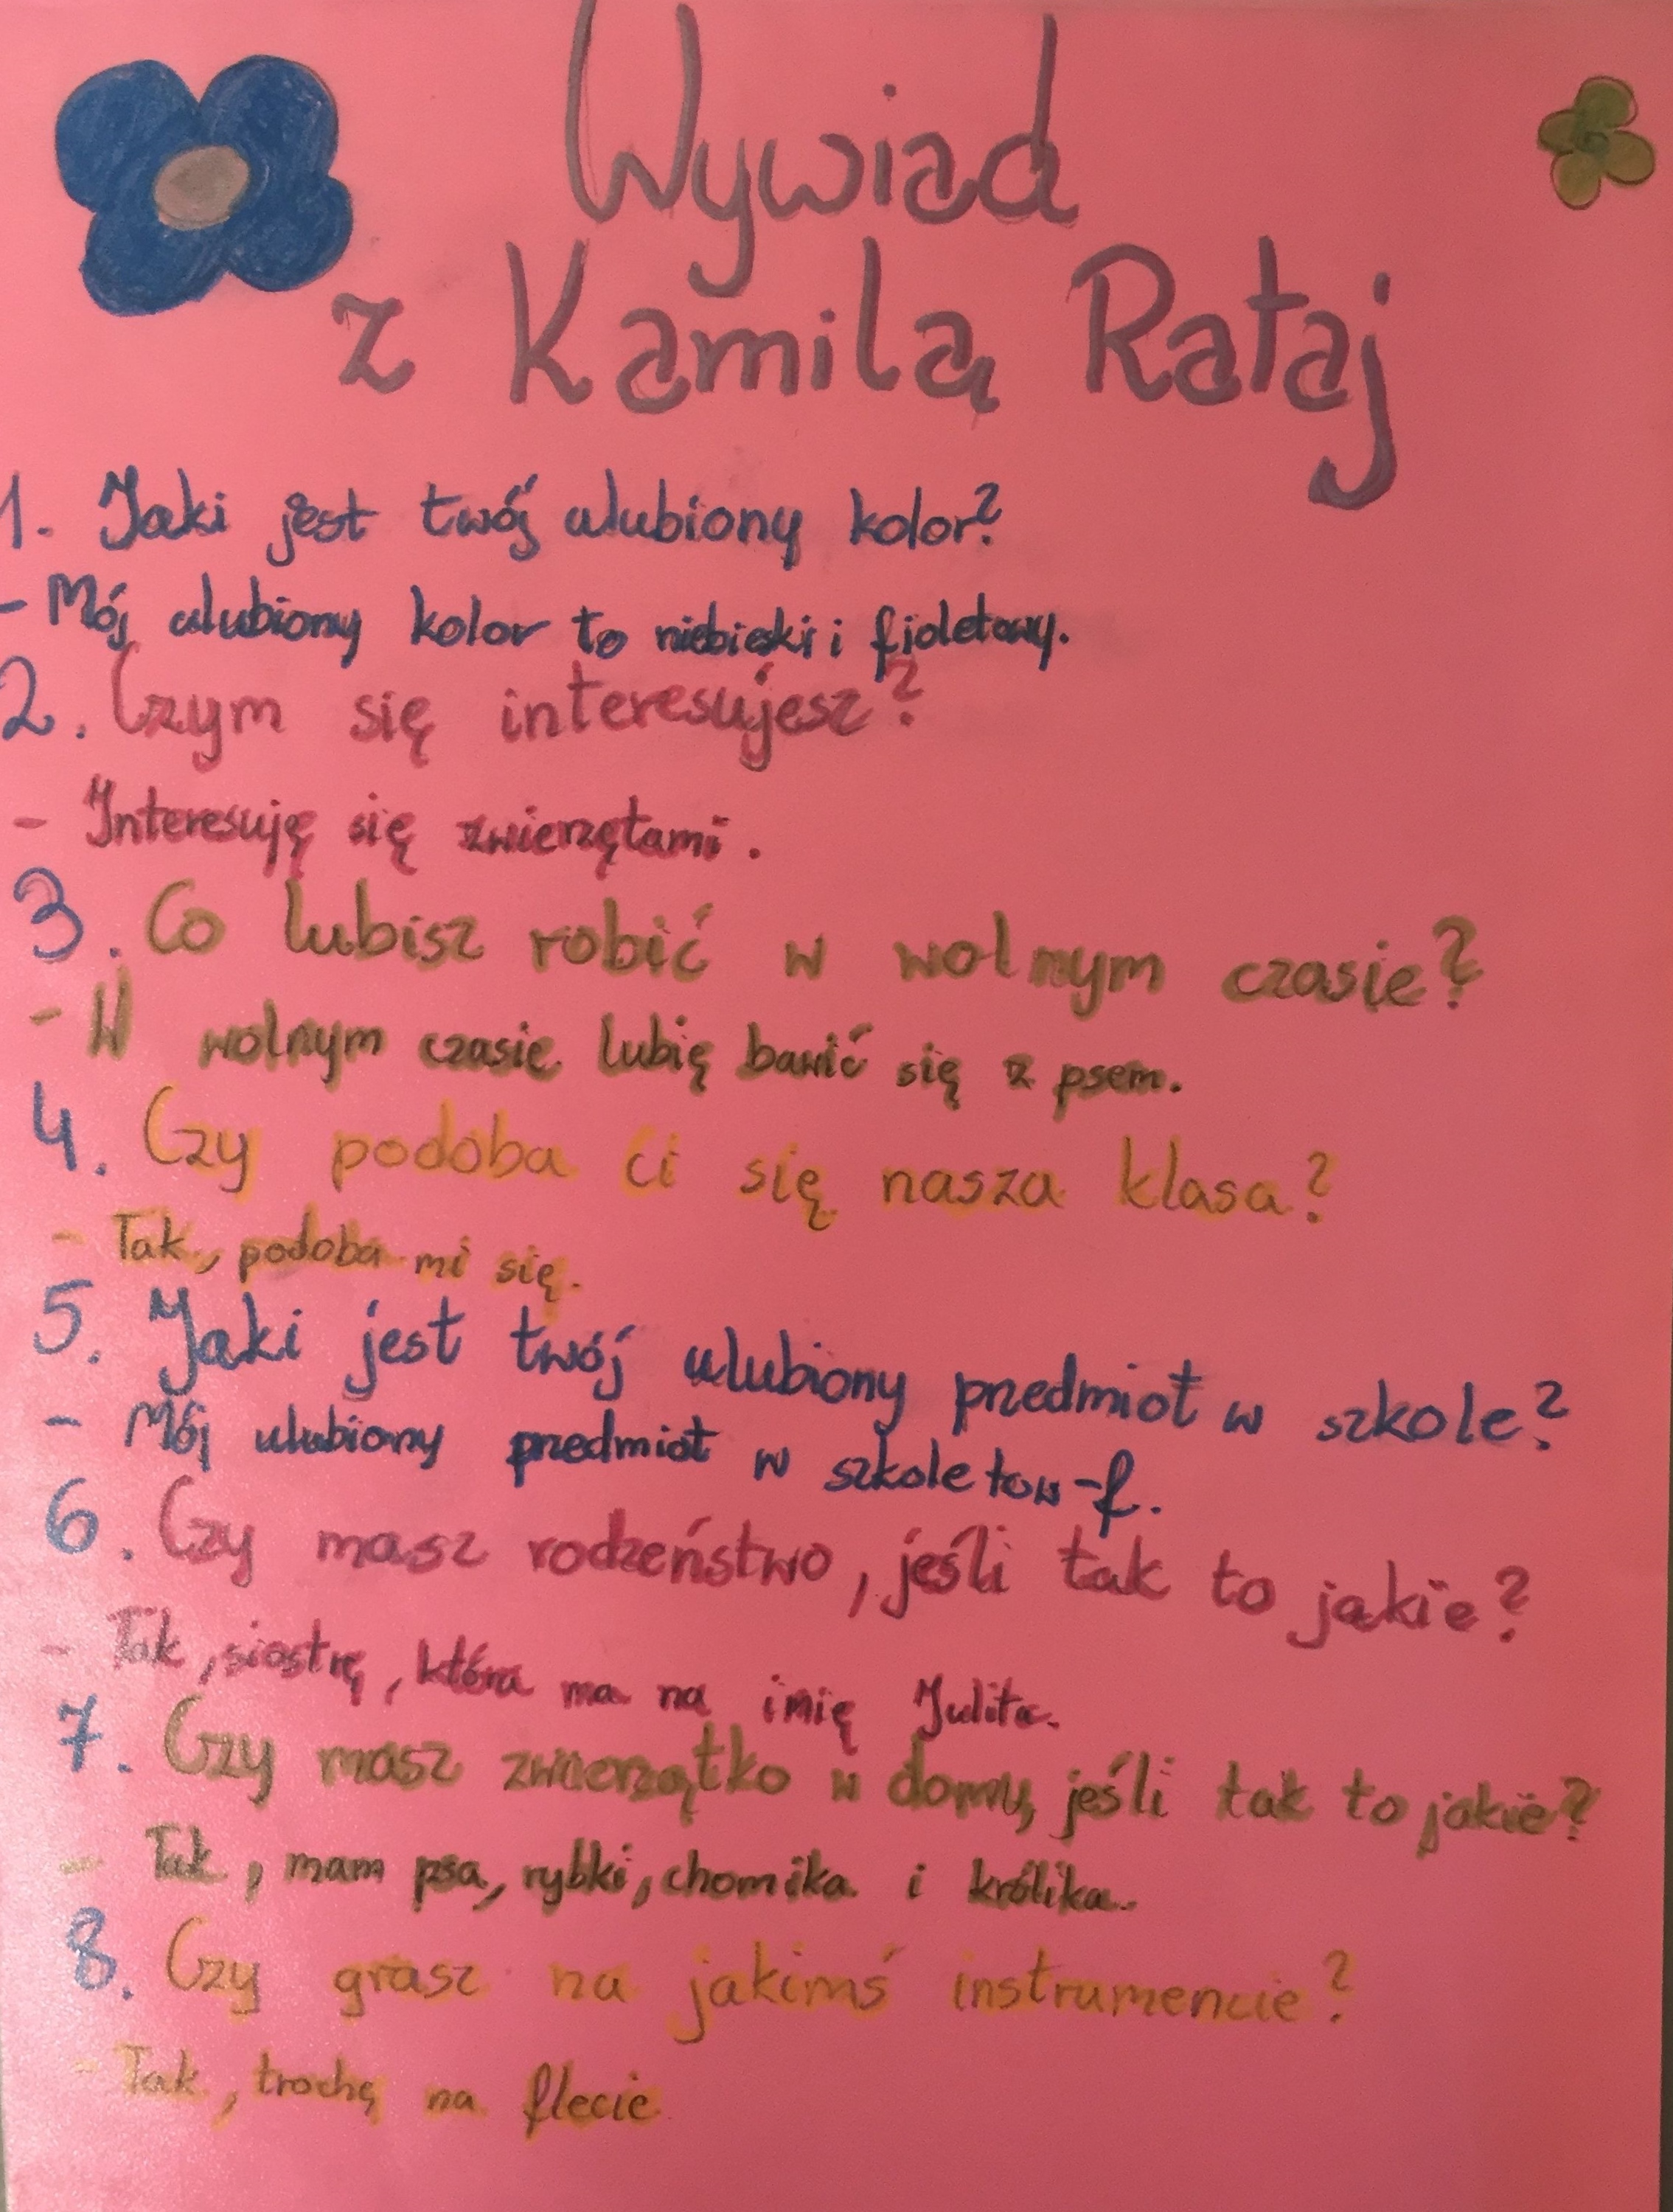 Wywiad
z Kamilą Rataj
1. Jaki jest twój ulubiony kolor?
- Mój ulubiony kolor to niebieski i fioletowy.
2. Czym się interesujesz?
- Interesuję się zwierzętami.
3. Co lubisz robić w wolnym czasie?
- W wolnym czasie lubię bawić się z psem.
4. Czy podoba ci się nasza klasa?
- Tak, podoba mi się.
5. Jaki jest twój ulubiony przedmiot w szkole?
- Mój ulubiony przedmiot w szkole to w-f.
6. Czy masz rodzeństwo, jeśli tak to jakie?
- Tak, siostrę, która ma na imię Julita.
7. Czy masz zwierzątko w domu, jeśli tak to jakie?
- Tak, mam psa, rybki, chomika i królika.
8. Czy grasz na jakimś instrumencie?
- Tak, trochę na flecie